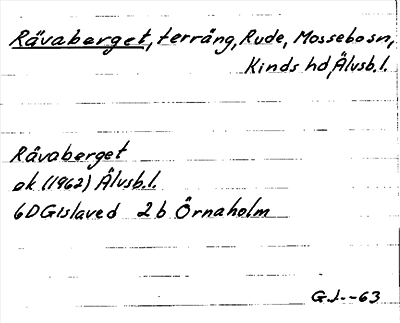 Rävaberget, terräng, Rude, Mossebo sn,
Kinds hd, Älvsb.l.
Rävaberget
ek (1962) Älvsb.l.
6D Gislaved 2b Örnaholm
G.J.-63